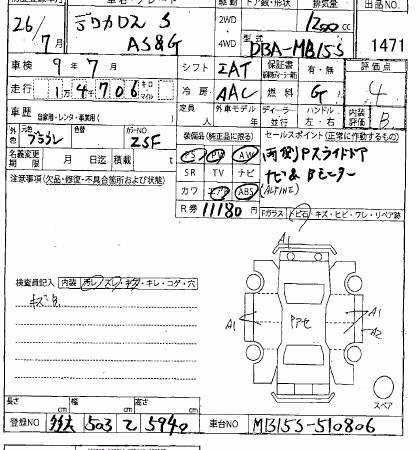 車名・グレード 駆動 ドア数・形状 排気量 出品NO.
26/7月 デリカD:5 S AS&G 2WD・4WD 1200cc 1471
型式 DBA-MB15S
車検 9年7月 シフト IAT 保証書 有・無 評価点 4
走行 1万4千706 キロ マイル 冷房 AAC 燃料 G
車歴 自家用・レンタ・事業用( ) 定員 人 外車モデル 年 ディーラー・並行 ハンドル 左・右 内装評価 B
外色 元色 色替 カラーNO ZSF
装備品(純正品に限る) セールスポイント(正常に作動するもの)
名義変更期限 月 日迄 積載 t PS PW AW 両側Pスライドドア
SR TV ナビ ナビ&Bモニター
注意事項(欠品・修復・不具合箇所および状態) カワ エアB ABS (ALPINE)
R券 11180円 Fガラス トビ石・キズ・ヒビ・ワレ・リペア跡
A1
検査員記入 内装 汚レ・スレ・キズ・キレ・コゲ・穴
A1 Pアセ A1
A2
スペア
長さ cm 幅 cm 高さ cm
登録NO 503 て 5940 車台NO MB15S-510806